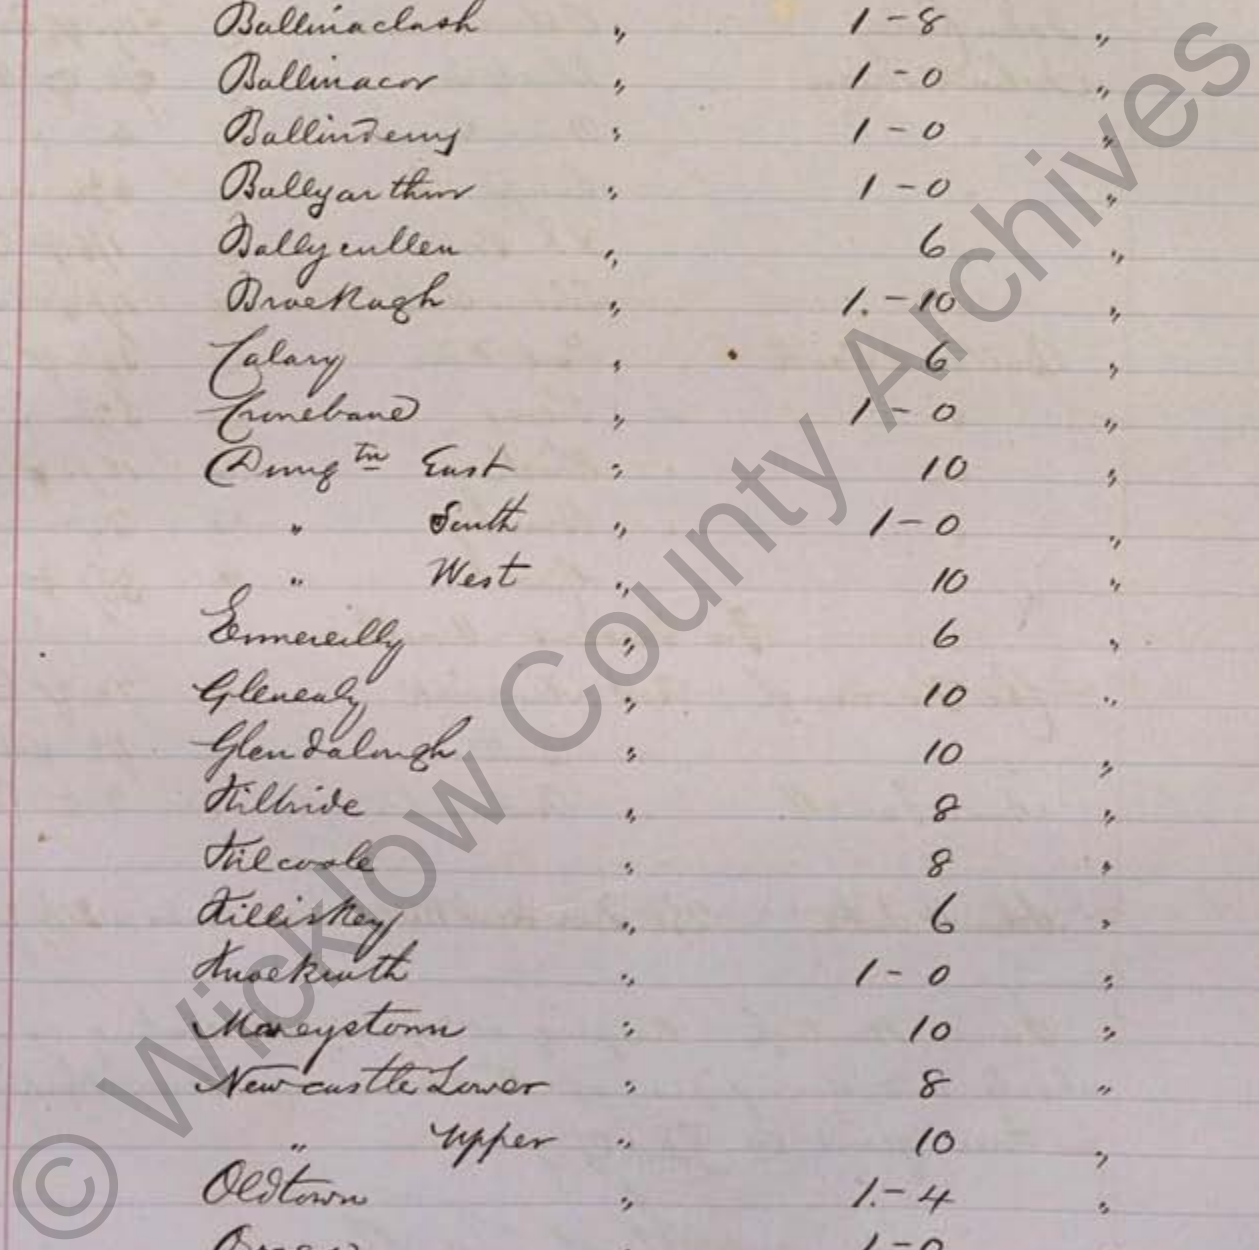 Ballinaclash " 1-8 "
Ballinacor " 1-0 "
Ballinderry " 1-0 "
Ballyarthur " 1-0 "
Ballycullen " 6 "
Brockagh " 1.-10 "
Calary " 6 "
Cronebane " 1-0 "
Dung tn East " 10 "
" South " 1-0 "
" West " 10 "
Ennereilly " 6 "
Glenealy " 10 "
Glendalough " 10 "
Kilbride " 8 "
Kilcoole " 8 "
Killiskey " 6 "
Knockrath " 1-0 "
Moneystown " 10 "
Newcastle Lower " 8 "
" Upper " 10 "
Oldtown " 1.-4 "
1-0
© Wicklow County Archives